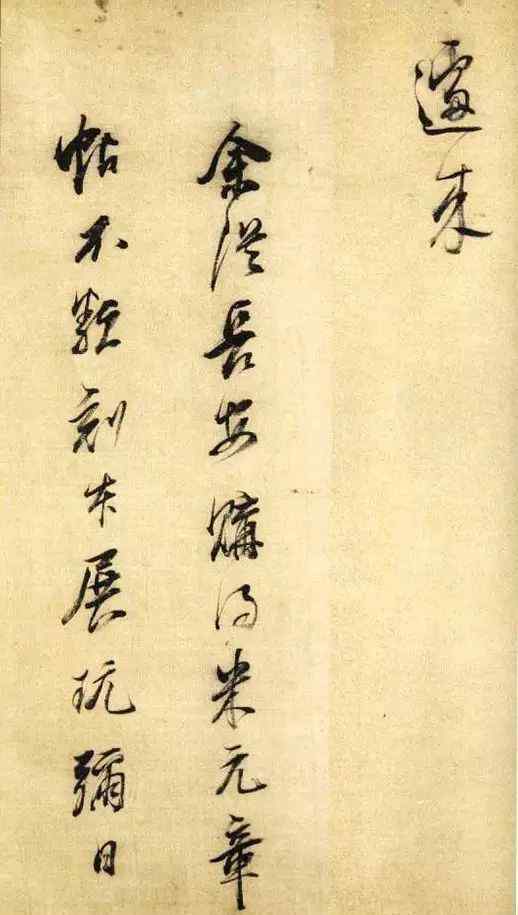 遽来
余從長安購得米元章
帖不類刻本展玩彌日